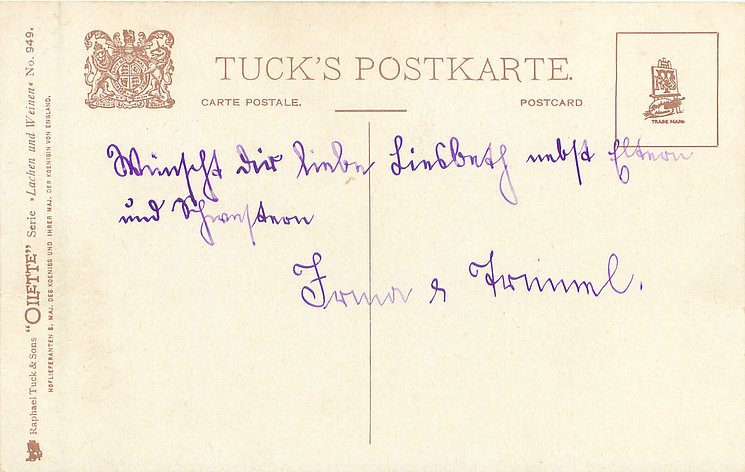 TUCK'S POSTKARTE.
CARTE POSTALE.
POSTCARD
TRADE MARK
Wünscht dir liebe Liesbeth nebst Eltern
und Schwestern
Irma &
Raphael Tuck & Sons "OILETTE" Serie »Lachen und Weinen« No. 949.
HOFLIEFERANTEN S. MAJ. DES KOENIGS UND IHRER MAJ. DER KOENIGIN VON ENGLAND.